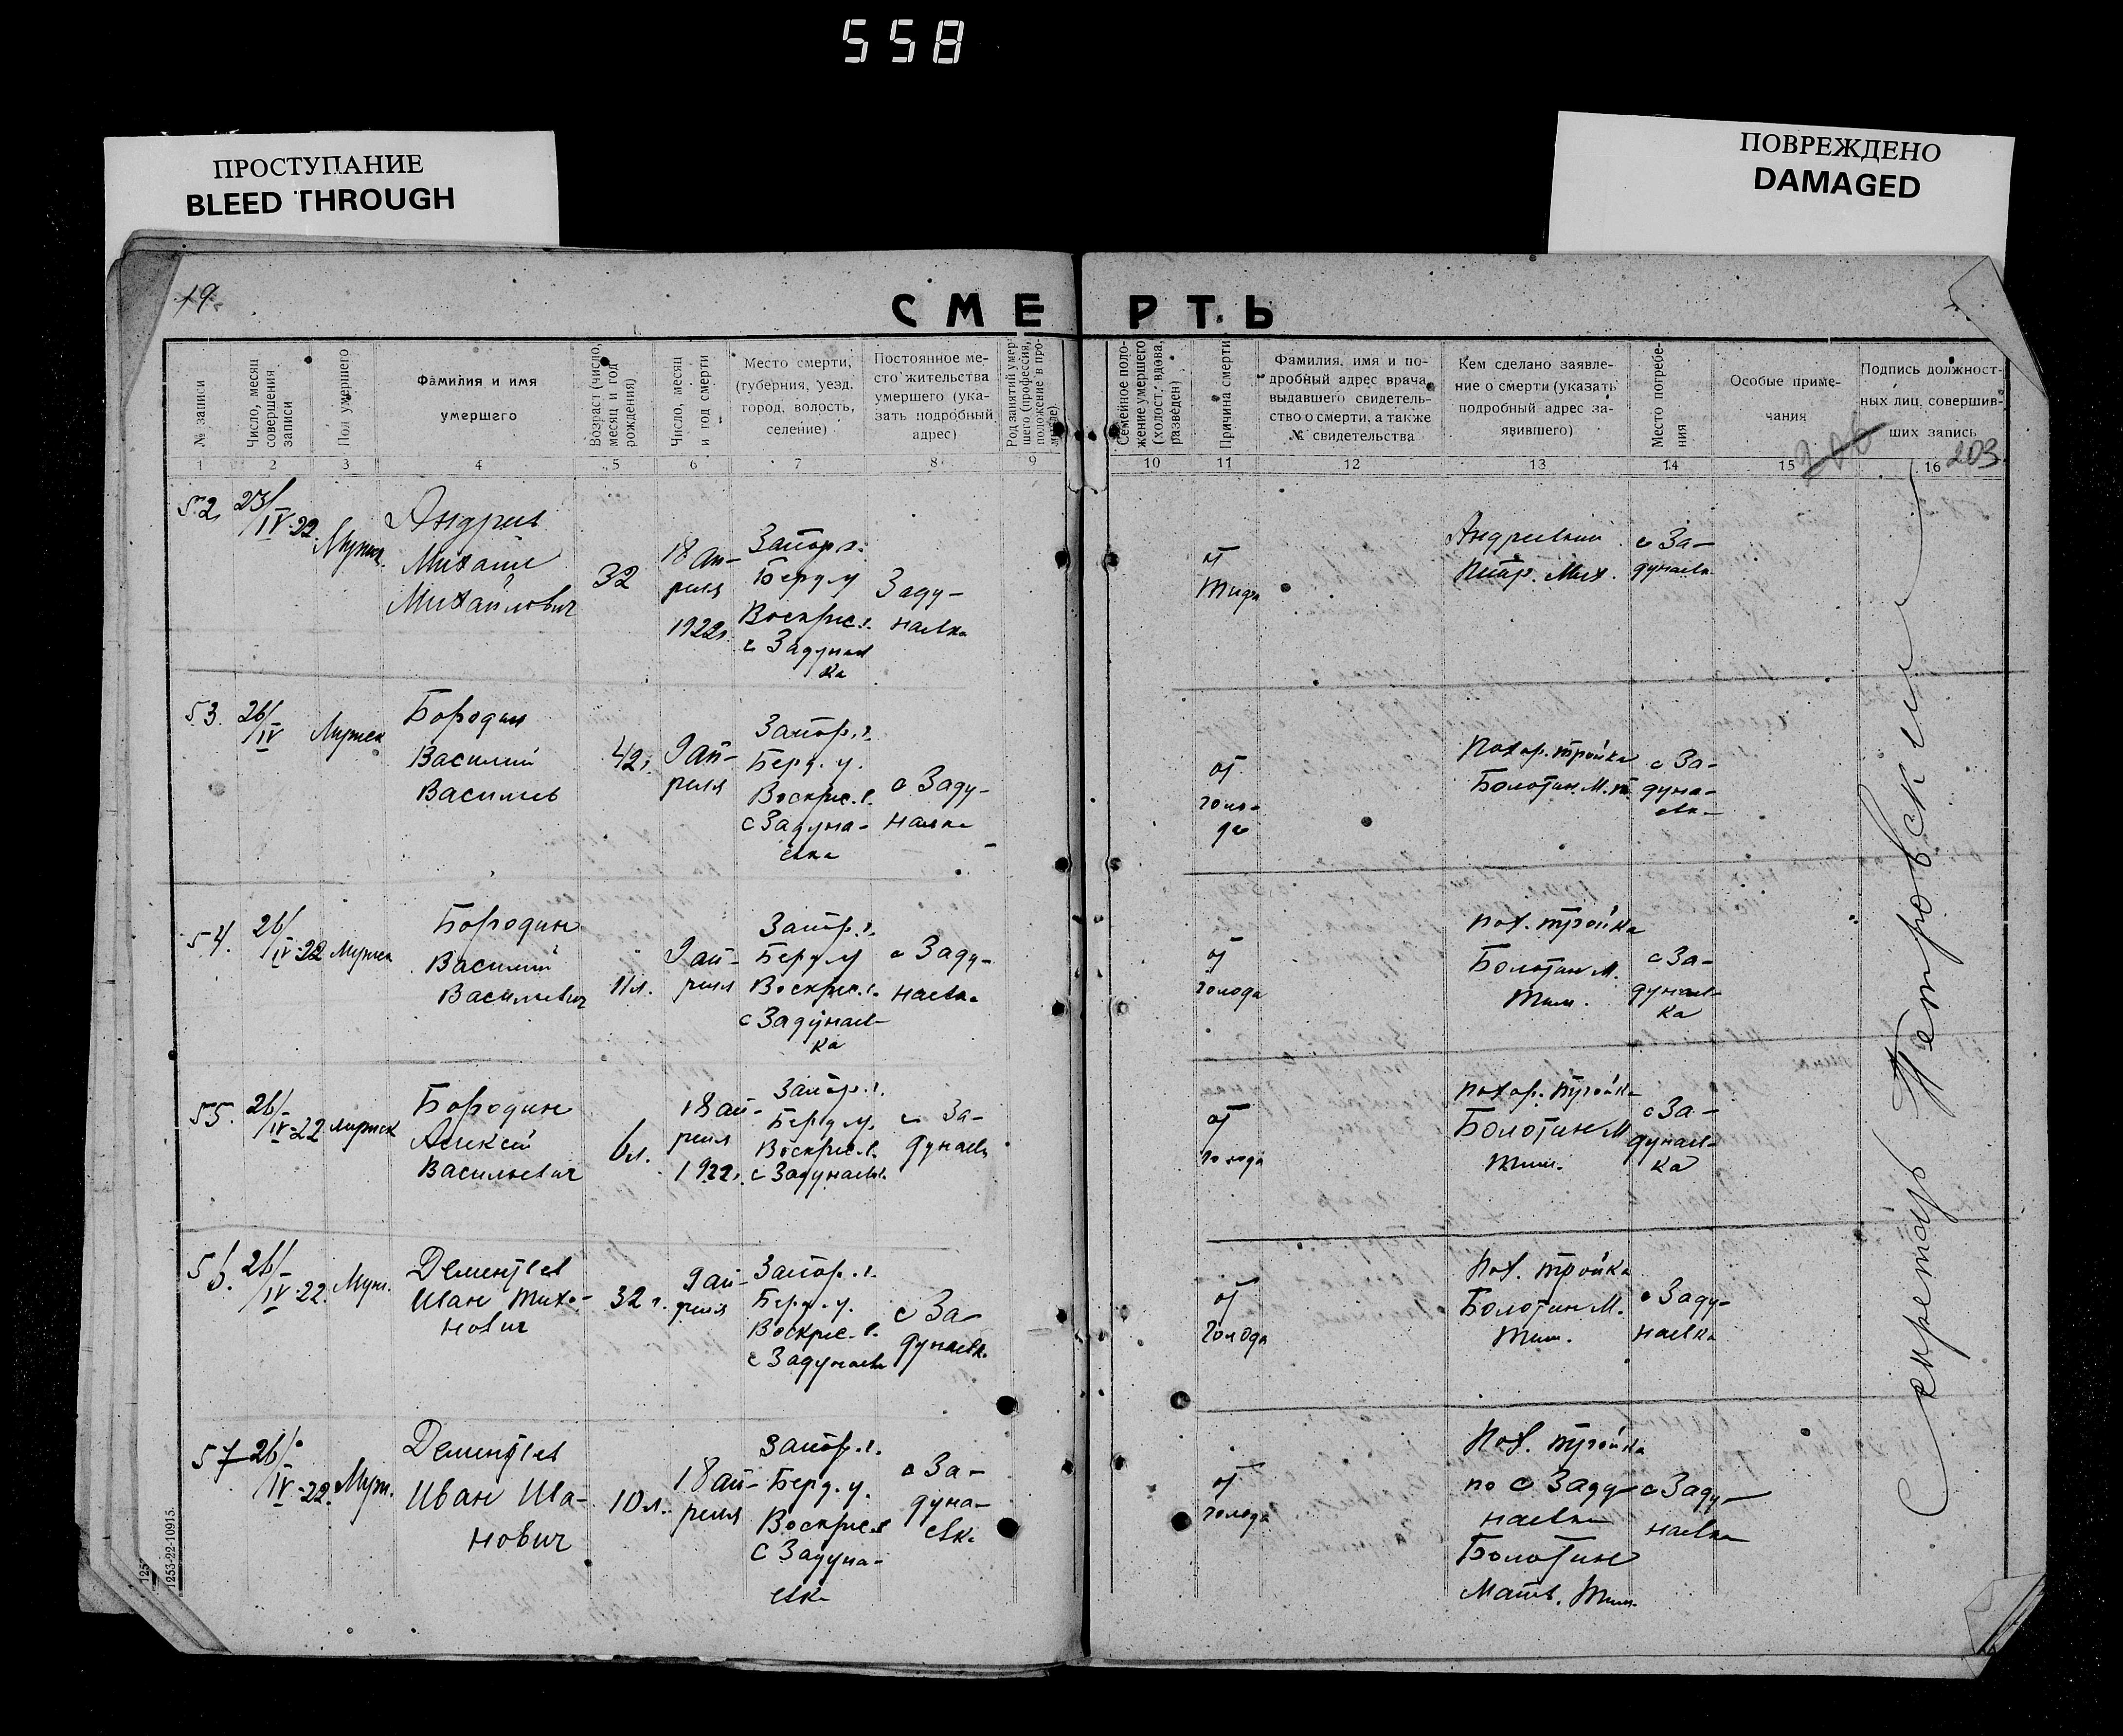 558
ПРОСТУПАНИЕ
BLEED THROUGH
ПОВРЕЖДЕНО
DAMAGED
19
СМЕРТЬ
№ записи
Число, месяц совершения записи
Пол умершего
Фамилия и имя умершего
Возраст (число, месяц и год рождения)
Число, месяц и год смерти
Место смерти, (губерния, уезд, город, волость, селение)
Постоянное место жительства умершего (указать подробный адрес)
Род занятий умершего (профессия, положение в промысле)
Семейное положение умершего (холост, вдова, разведен)
Причина смерти
Фамилия, имя и подробный адрес врача, выдавшего свидетельство о смерти, а также № свидетельства
Кем сделано заявление о смерти (указать подробный адрес заявившего)
Место погребения
Особые примечания
Подпись должностных лиц, совершивших запись
1 2 3 4 5 6 7 8 9 10 11 12 13 14 15 16
206
203
52
23/IV-22
Андриев
Михаил
Михайлович
32
18 ап-
реля
1922г.
Запор г.
Берд у
Воскрес.
с Задунаев
ка
Заду-
наевка
от
Тифа
Пётр. Мих.
с За-
дунаевк
53.
26/IV
Мужск
Бородин
Василий
Васильев
42г.
9 ап-
реля
Запор. г.
Берд. у.
Воскрес. в.
с Задуна-
евка
с Заду-
наевка
от
голо-
да
Похор. тройка
Болотин. М. Т.
с За-
дуна-
евка
54.
26/IV-22
Мужск
Бородин
Василий
Васильевич
11 л.
9 ап-
реля
Запор. г.
Берд у
Воскрес. в.
с Задунаев-
ка
с Заду-
наевка
от
голода
Пох. тройка
Болотин М.
Тим.
с За-
дунаев-
ка
55.
26/IV-22
мужск
Бородин
Алексей
Васильевич
6 л.
18 ап-
реля
1922г.
Запор. г.
Берд у.
Воскрес. в.
с Задунаевк.
с За-
дунаевк
от
голода
Похор. тройка
Болотин М
Тим.
с За-
дунаев-
ка
56.
26/IV-22.
Муж.
Дементьев
Иван Тихо-
нович
32 г.
9 ап-
реля
Запор. г.
Берд. у.
Воскрес. в.
с Задунаевк
с За-
дунаевк.
от
голода
Пох. тройка
Болотин М.
Тим.
с Заду-
наевка
57
26/IV-22.
Муж.
Дементьев
Иван Ива-
нович
10 л.
18 ап-
реля
Запор. г.
Берд. у.
Воскрес. в
с Задуна-
евка
с За-
дуна-
евка
от
голода
Пох. тройка
по с Заду-
наевка
Болотин
Матв. Тим.
с Заду-
наевка
Секретарь Петровский
125
1253-22-10915.